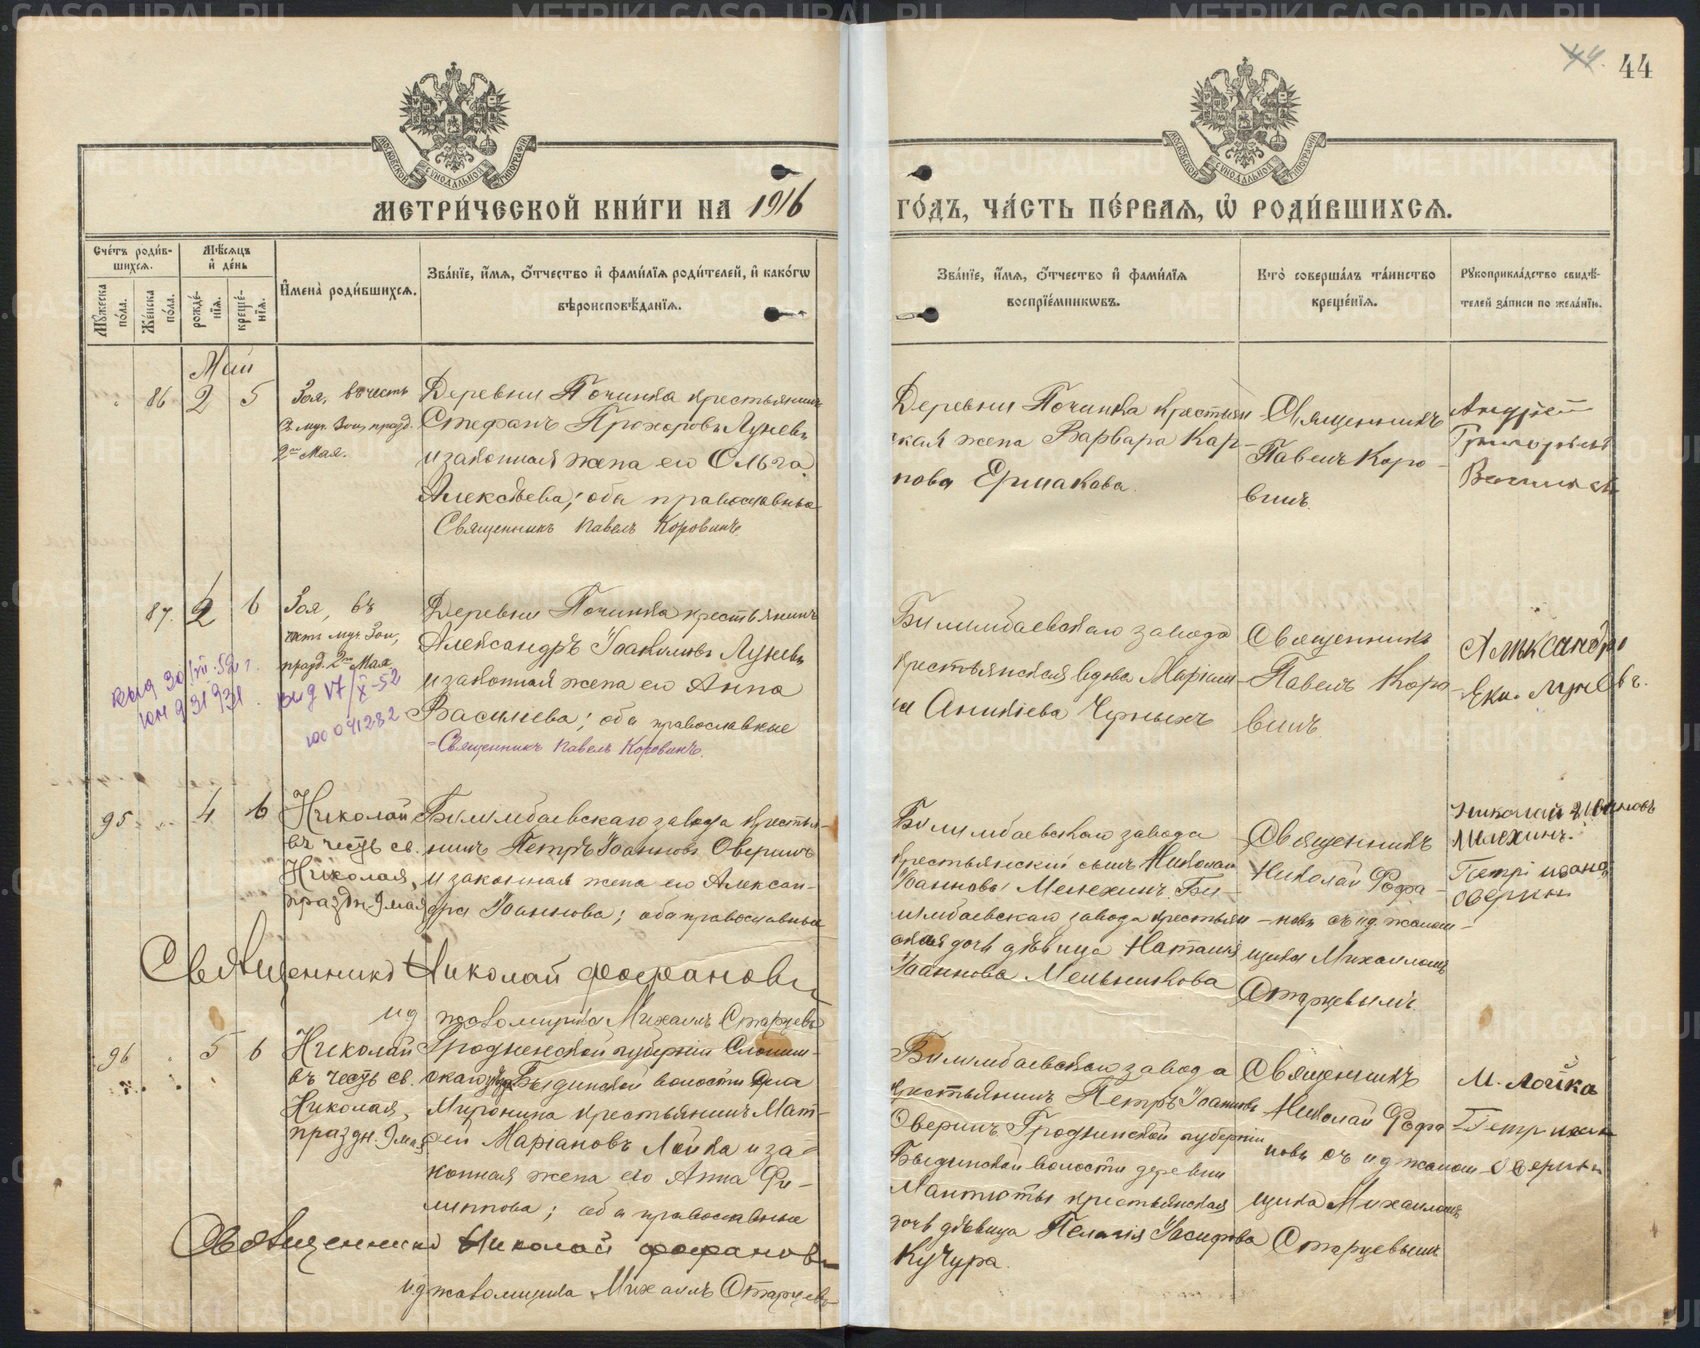 44
МЕТРИ́ЧЕСКОЙ КНИ́ГИ НА 1916
ГО́ДЪ, ЧА́СТЬ ПЕ́РВАЯ, Ѽ РОДИ́ВШИХСЯ.
Сче́тъ роди́вшихся.
Му́жеска по́ла.
Же́нска по́ла.
Мѣ́сяцъ и҆ де́нь
рожде́нїя.
креще́нїя.
И҆мена̀ роди́вшихся.
Зва́нїе, и҆́мя, ѻ҆́тчество и҆ фами́лїя роди́телей, и҆ како́гѡ
вѣроисповѣ́данїя.
Зва́нїе, и҆́мя, ѻ҆́тчество и҆ фами́лїя
воспрїе́мникѡвъ.
Кто̀ соверша́лъ та́инство
креще́нїя.
Рꙋкоприкла́дство свидѣ́телей за́писи по жела́нїю.
Май
86 2 5
Зоя, въ честь
св. муч. Зои, празд.
2го Мая.
Деревни Починка крестьянинъ
Стефанъ Прохоровъ Луневъ
и законная жена его Ольга
Алексѣева; оба православные
Священникъ Павелъ Коровинъ
Деревни Починка крестьян
ская жена Варвара Кар-
пова Ермакова.
Священникъ
Павелъ Коро-
винъ.
Андрей
Григорьевъ
87. 2 6
Зоя, въ
честь муч. Зои,
празд. 2го Мая
Деревни Починка крестьянинъ
Александръ Іоакимовъ Луневъ
и законная жена его Анна
Васильева; оба православные
Священникъ Павелъ Коровинъ.
выд 17/X-52
Билимбаевскаго завода
крестьянская вдова Маріам-
на Аникіева Черныхъ
Священникъ
Павелъ Коро
винъ.
Александръ
Луневъ.
95 4 6
Николай
въ честь св.
Николая,
праздн. 9 мая
Билимбаевскаго завода крестья-
нинъ Петръ Іоанновъ Оверинъ
и законная жена его Алексан-
дра Іоаннова; оба православные
Священникъ Николай Фофановъ
ид псаломщика Михаилъ Старцевъ
Билимбаевскаго завода
крестьянскій сынъ Николай
Іоанновъ Мелехинъ. Би-
лимбаевскаго завода крестьян
ская дочь дѣвица Наталія
Іоаннова Мельникова
Священникъ
Николай Фофа-
новъ съ ид псалом-
щика Михаиломъ
Старцевымъ.
Николай Ивановъ
Мелехинъ.
Петръ Иванов
Оверин
96 5 6
Николай
въ честь св.
Николая,
праздн. 9 мая
Гродненской губерніи Слоним-
скаго уѣзда Бытенской волости села
Миронима крестьянинъ Мат-
фей Маріановъ Лойка и за-
конная жена его Анна Фи-
липпова; оба православные
Священникъ Николай Фофановъ
ид псаломщика Михаилъ Старцевъ
Билимбаевскаго завода
крестьянинъ Петръ Іоанновъ
Оверинъ. Гродненской губерніи
Бытенской волости деревни
крестьянская
дочь дѣвица Пелагія Іосифова
Кучура.
Священникъ
Николай Фофа
новъ съ ид псалом-
щика Михаиломъ
Старцевымъ
М. Лойка
Петр Иван
Оверин